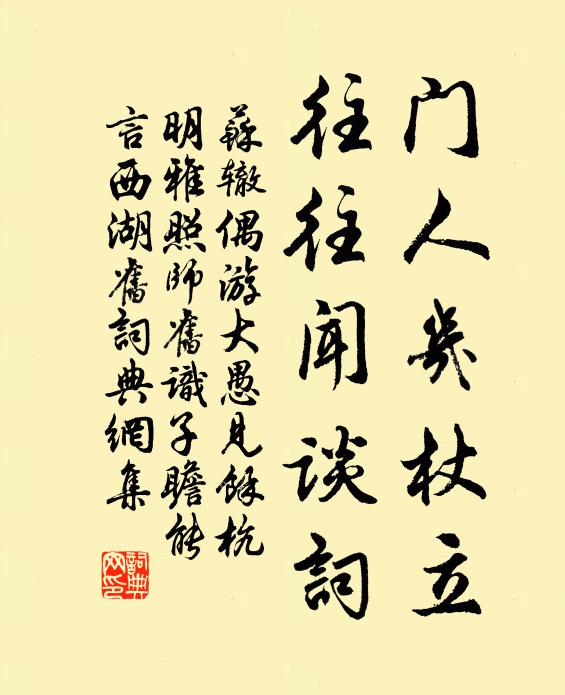 门人几杖立
往往闻谈詞
蘇辙偶游大愚見餘杭
明雅照師舊識子瞻能
言西湖舊詞典網集
詞典
网印